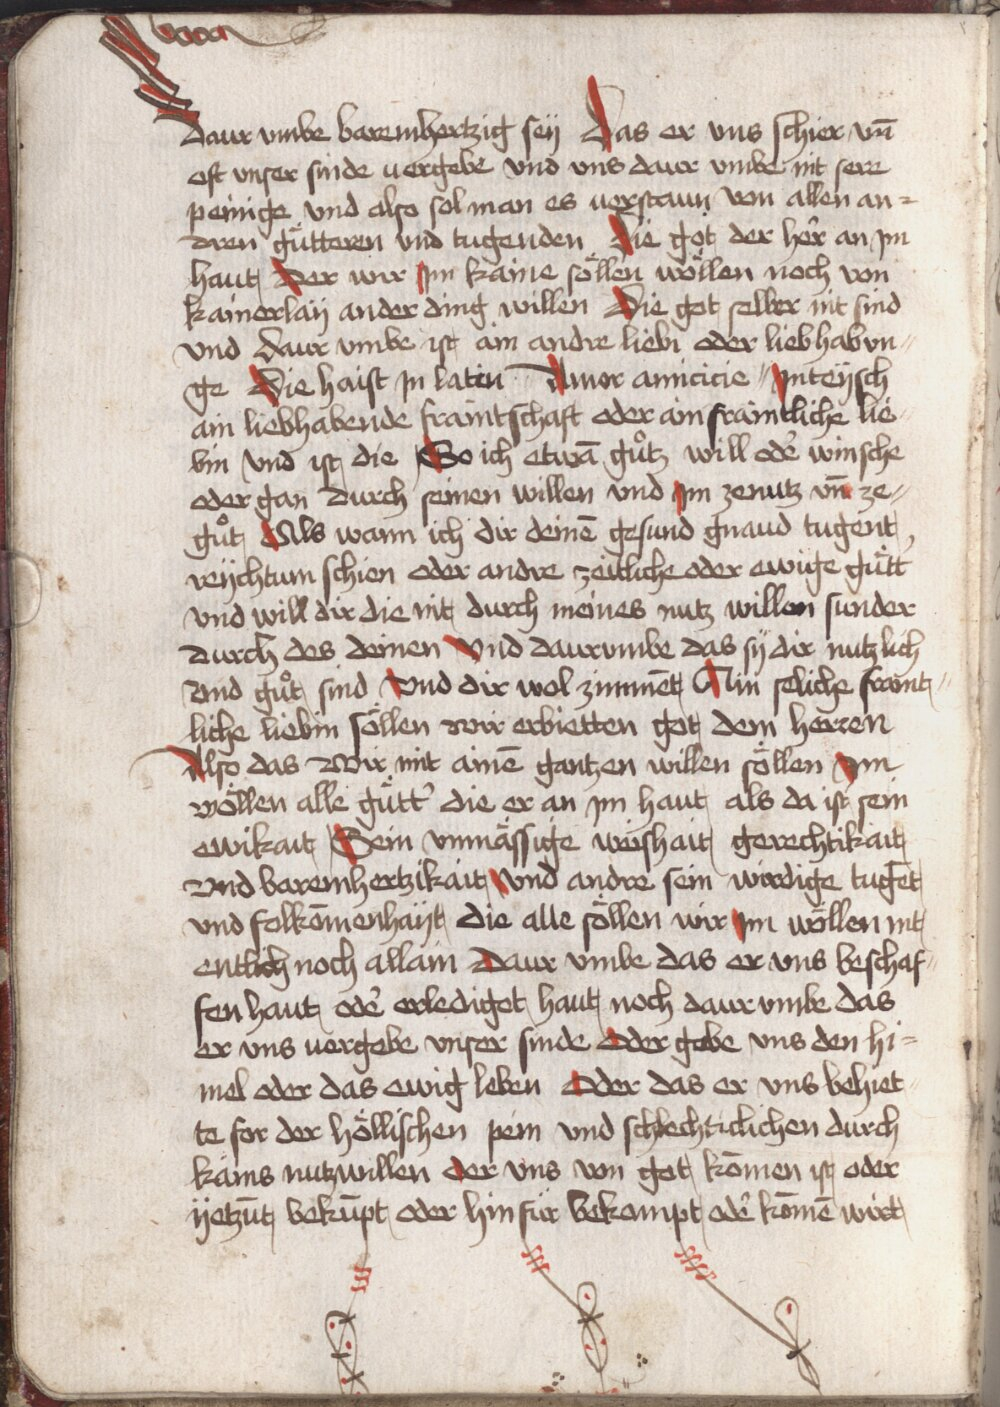 daur vmbe baremhertzig seÿ Das er vns schier vn̄
oft vnser sinde uergebe vnd vns daur vmbe nit sere
peinige vnd also sol man es uerstaun von allen an=
dren gu̎tteren vnd tugenden Die got der her̄ an jm
haut Der wir Jm kaine söllen wöllen noch von
kainerlaÿ ander ding willen Die got selber nit sind
vnd Daur vmbe ist ain andre liebi oder liebhabvn=
ge Die haist jn latin Amor amicicie Jnteÿsch
ain liebhabende fraintschaft oder ain fraintliche lie=
bin vnd ist die So ich etwā gůtz will ode᷑ winsche
oder gan durch seinen willen vnd jm zenutz vn̄ ze=
gůt Als wann ich dir deinē gesund gnaud tugent
reÿchtum schien oder andre zeitliche oder ewige gütt᷑
vnd will dir die nit durch meines nutz willen sunder
durch des deinen Vnd daurumbe das sÿ dir nutzlich
Vnd gůt sind Vnd dir wol zimmēt Ain seliche fraint=
liche liebin söllen wir erbietten got dem herren
Also das Wir mit ainē gantzen willen söllen Jm
wöllen alle gütt᷑ die er an jm haut als da ist sein
ewikait Sein vnmässige weishait gerechtikait
Vnd baremhertzikait Vnd andre sein wirdige tugēt
vnd folkōmenhaÿt die alle söllen wir jm wöllen nit
entlich noch allain Daur vmbe das er vns beschaf=
fen haut ode᷑ erlediget haut noch daur vmbe das
er vns uergebe vnser sinde Oder gebe vns den hi=
mel oder das ewig leben Oder das er vns behiet=
te for der höllischen pein vnd schlechticlichen durch
kains nutzwillen der vns von got kōmen ist oder
ÿetzūt bekūpt oder hin für bekompt ode᷑ kōmē wirt